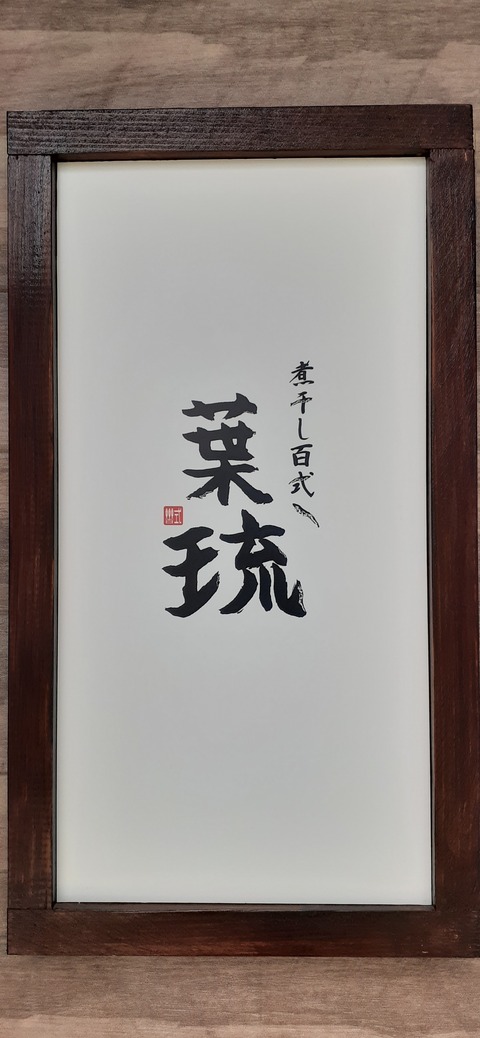 煮干し百式
葉琉